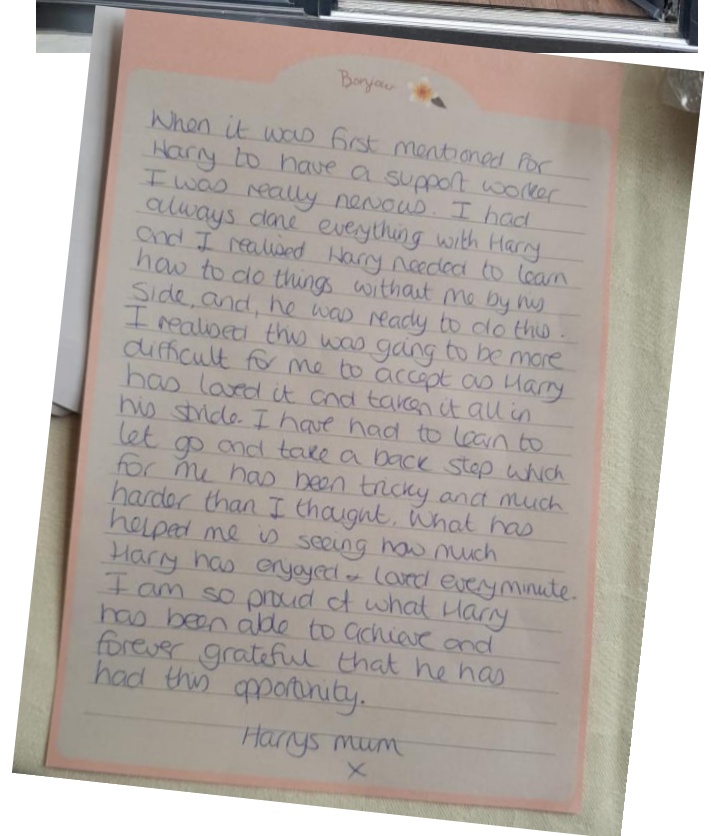 Bonjour
When it was first mentioned for
Harry to have a support worker
I was really nervous. I had
always done everything with Harry
and I realised Harry needed to learn
how to do things without me by his
side, and, he was ready to do this.
I realised this was going to be more
difficult for me to accept as Harry
has loved it and taken it all in
his stride. I have had to learn to
let go and take a back step which
for me has been tricky and much
harder than I thought. What has
helped me is seeing how much
Harry has enjoyed & loved every minute.
I am so proud of what Harry
has been able to achieve and
forever grateful that he has
had this opportunity.
Harrys mum
x